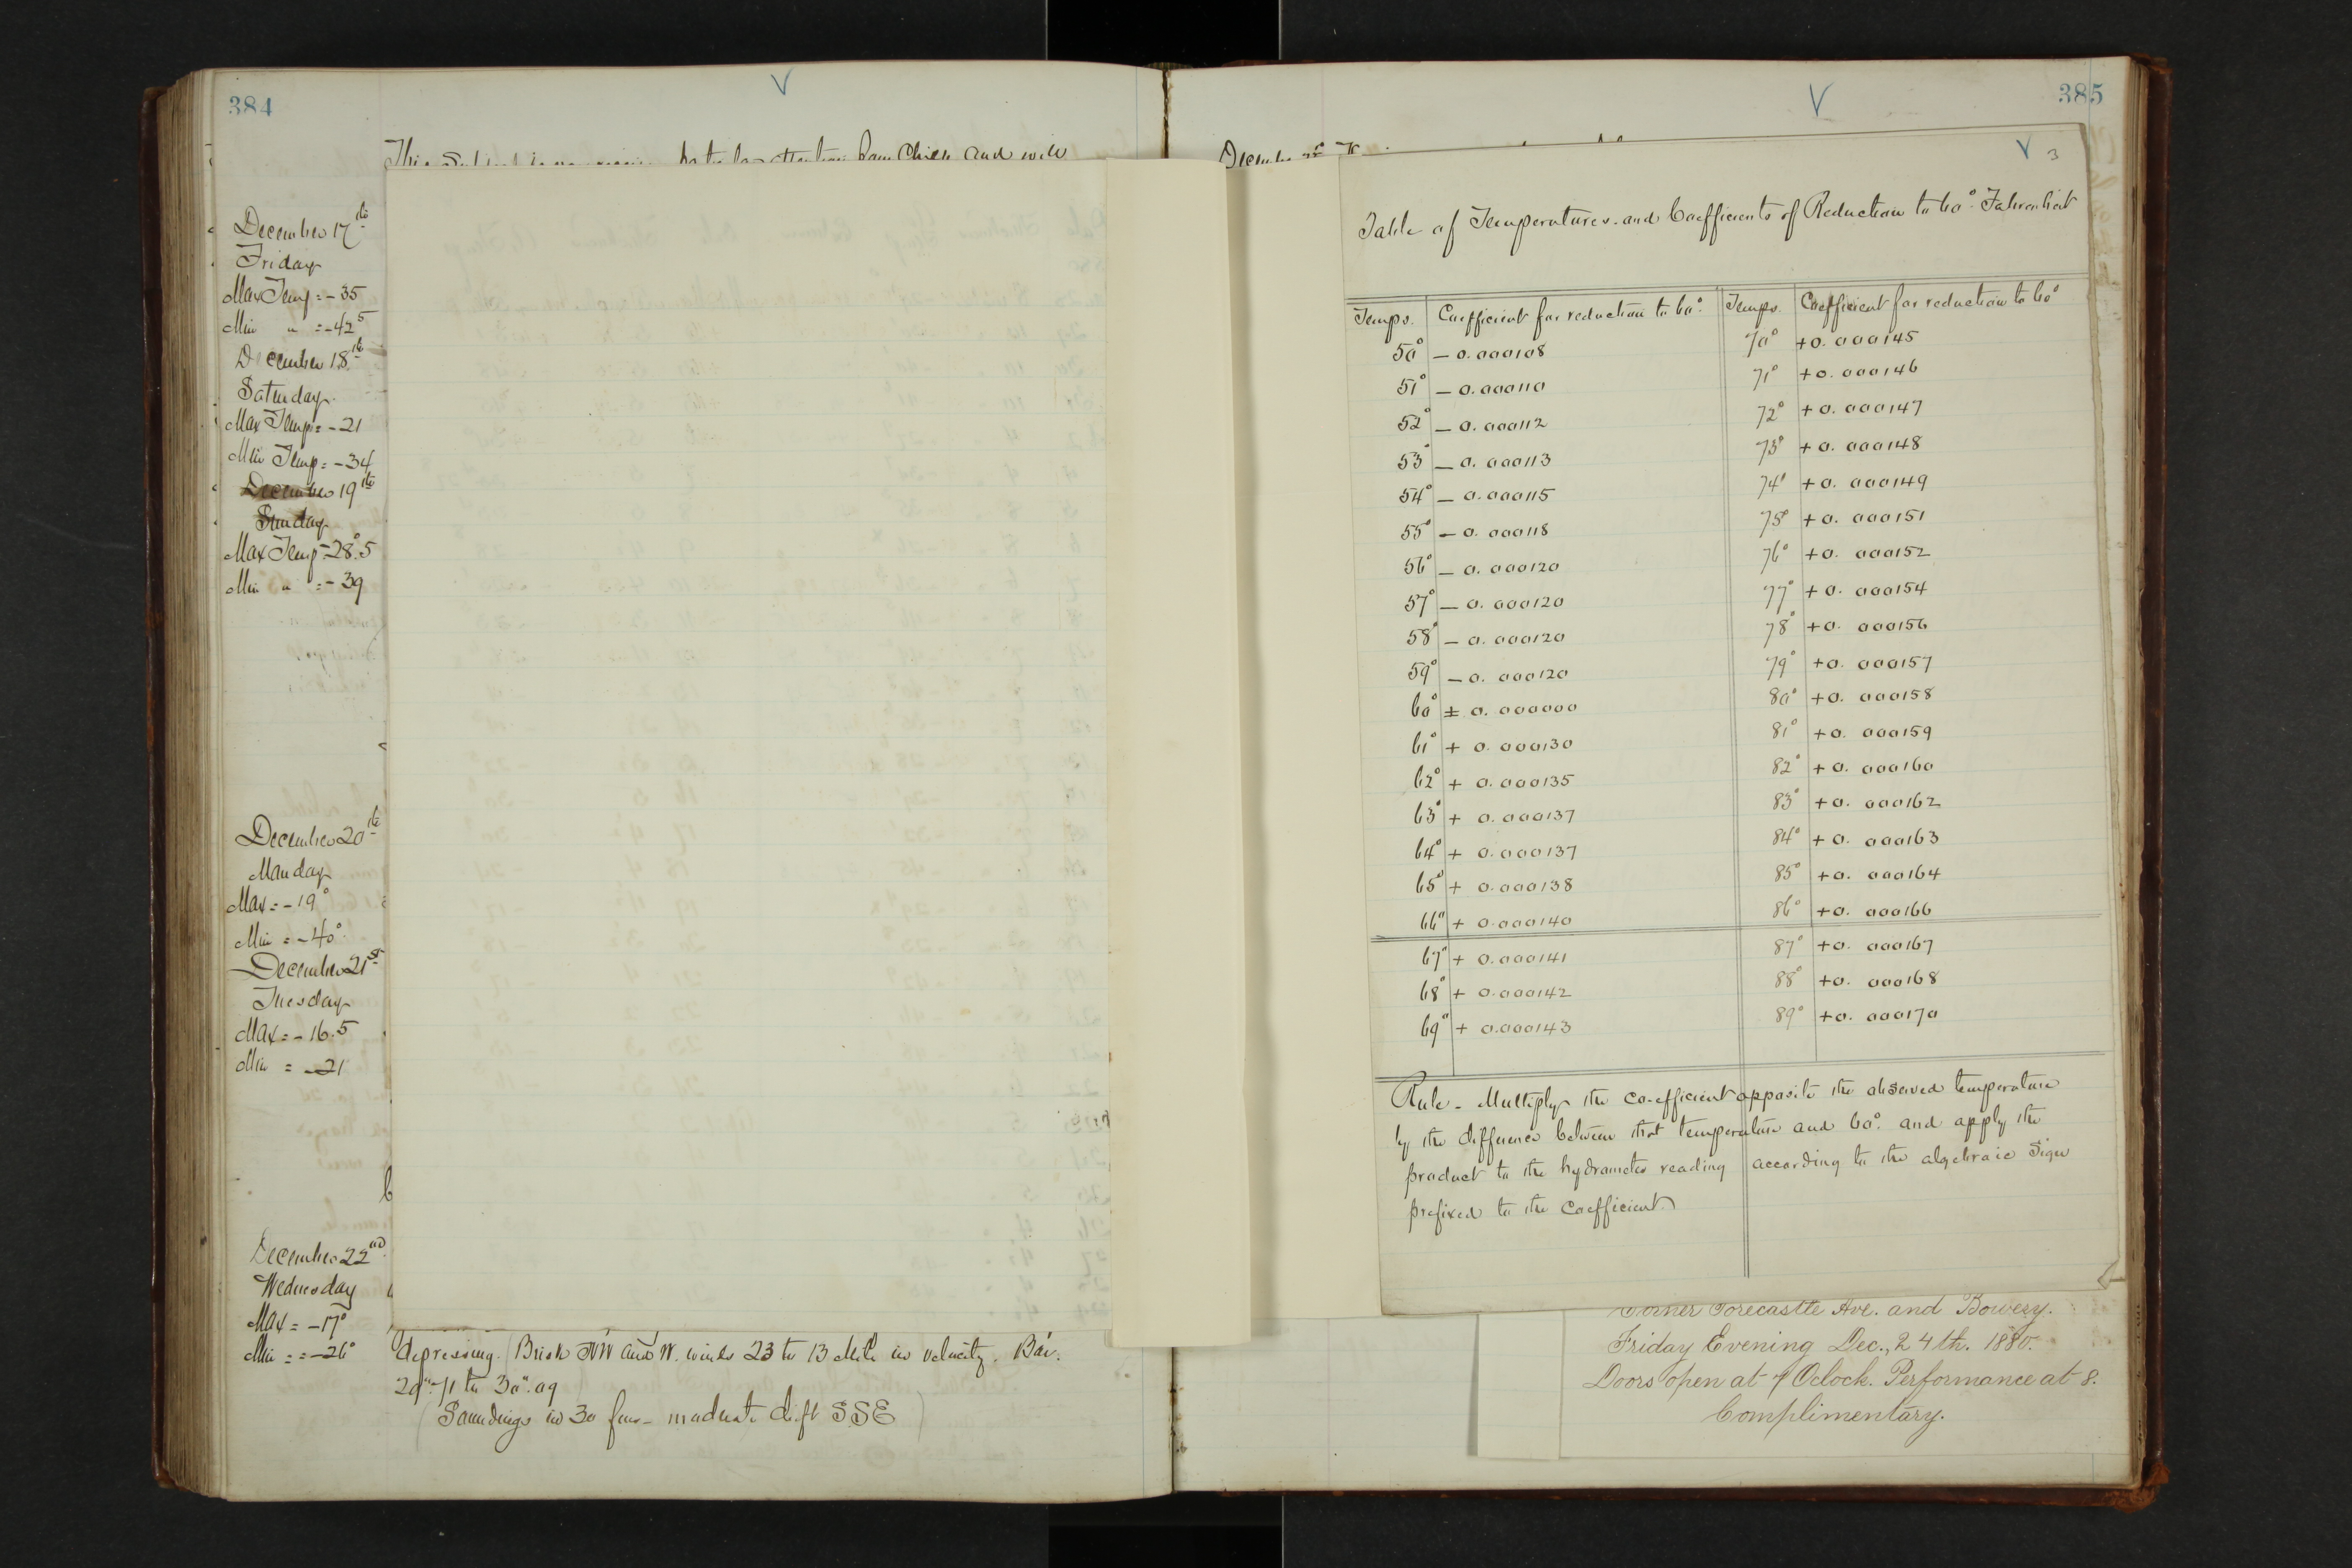 384
This
and will
December 17th
Friday
Max Temp = - 35
Min " = - 42 5
December 18th
Saturday.
Max Temp = - 21
Min Temp = - 34
December 19th
Sunday
Max Temp = - 28°.5
Min " = - 39
December 20th
Monday
Max = - 19°
Min = - 40°
December 21st
Tuesday
Max = - 16.5
Min = - 21
December 22nd
Wednesday
Max = - 17°
Min = = - 26°
depressing. Brisk NW and W. winds 23 to 13 in velocity. Bar.
29".71 to 30".09
(Soundings in 30 fms - moderate drift SSE)
385
3
Table of Temperatures and Coefficients of Reduction to 60° Fahrenheit
Temps. Coefficient for reduction to 60° Temps. Coefficient for reduction to 60°
50° - 0.000108 70° + 0.000145
51° - 0.000110 71° + 0.000146
52° - 0.000112 72° + 0.000147
53° - 0.000113 73° + 0.000148
54° - 0.000115 74° + 0.000149
55° - 0.000118 75° + 0.000151
56° - 0.000120 76° + 0.000152
57° - 0.000120 77° + 0.000154
58° - 0.000120 78° + 0.000156
59° - 0.000120 79° + 0.000157
60° ± 0.000000 80° + 0.000158
61° + 0.000130 81° + 0.000159
62° + 0.000135 82° + 0.000160
63° + 0.000137 83° + 0.000162
64° + 0.000137 84° + 0.000163
65° + 0.000138 85° + 0.000164
66° + 0.000140 86° + 0.000166
67° + 0.000141 87° + 0.000167
68° + 0.000142 88° + 0.000168
69° + 0.000143 89° + 0.000170
Rule - Multiply the co-efficient opposite the observed temperature
by the difference between that temperature and 60° and apply the
product to the hydrometer reading according to the algebraic sign
prefixed to the coefficient.
Corner Forecastle Ave. and Bowery.
Friday Evening Dec., 24th. 1880.
Doors open at 7 Oclock. Performance at 8.
Complimentary.